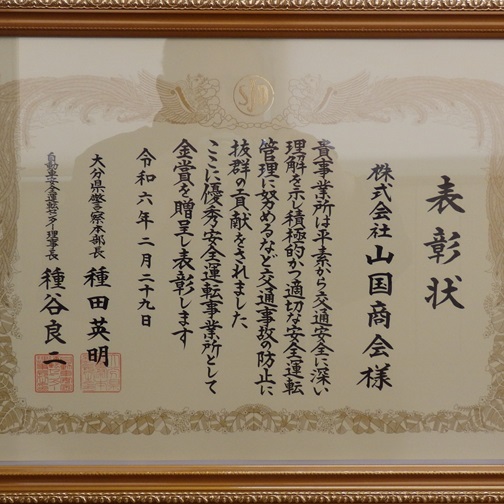 表彰状
株式会社山国商会様
貴事業所は平素から交通安全に深い
理解を示し積極的かつ適切な安全運転
管理に努めるなど交通事故の防止に
抜群の貢献をされました
ここに優秀安全運転事業所として
金賞を贈呈し表彰します
令和六年二月二十九日
大分県警察本部長 種田英明
自動車安全運転センター理事長 種谷良二